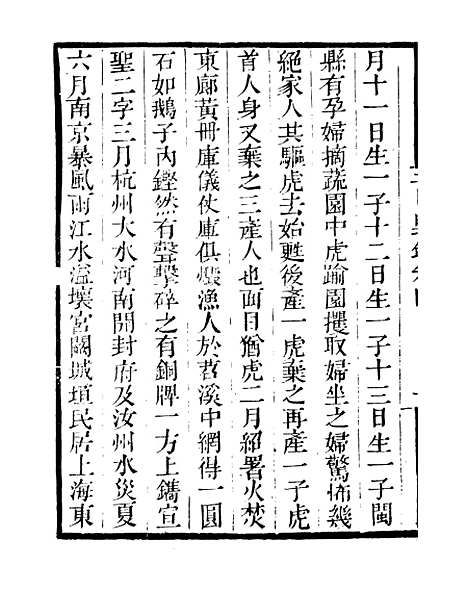 月十一日生一子十二日生一子十三日生一子閩
縣有孕婦摘蔬園中虎踰園攫取婦坐之婦驚怖幾
絕家人其驅虎去始甦後產一虎棄之再產一子虎
首人身又棄之三產人也面目猶虎二月紹署火焚
東廊黃冊庫儀仗庫俱燬漁人於苕溪中網得一圓
石如鵝子內鏗然有聲擊碎之有銅牌一方上鐫宣
聖二字三月杭州大水河南開封府及汝州水災夏
六月南京暴風雨江水溢壞宮闕城垣民居上海東